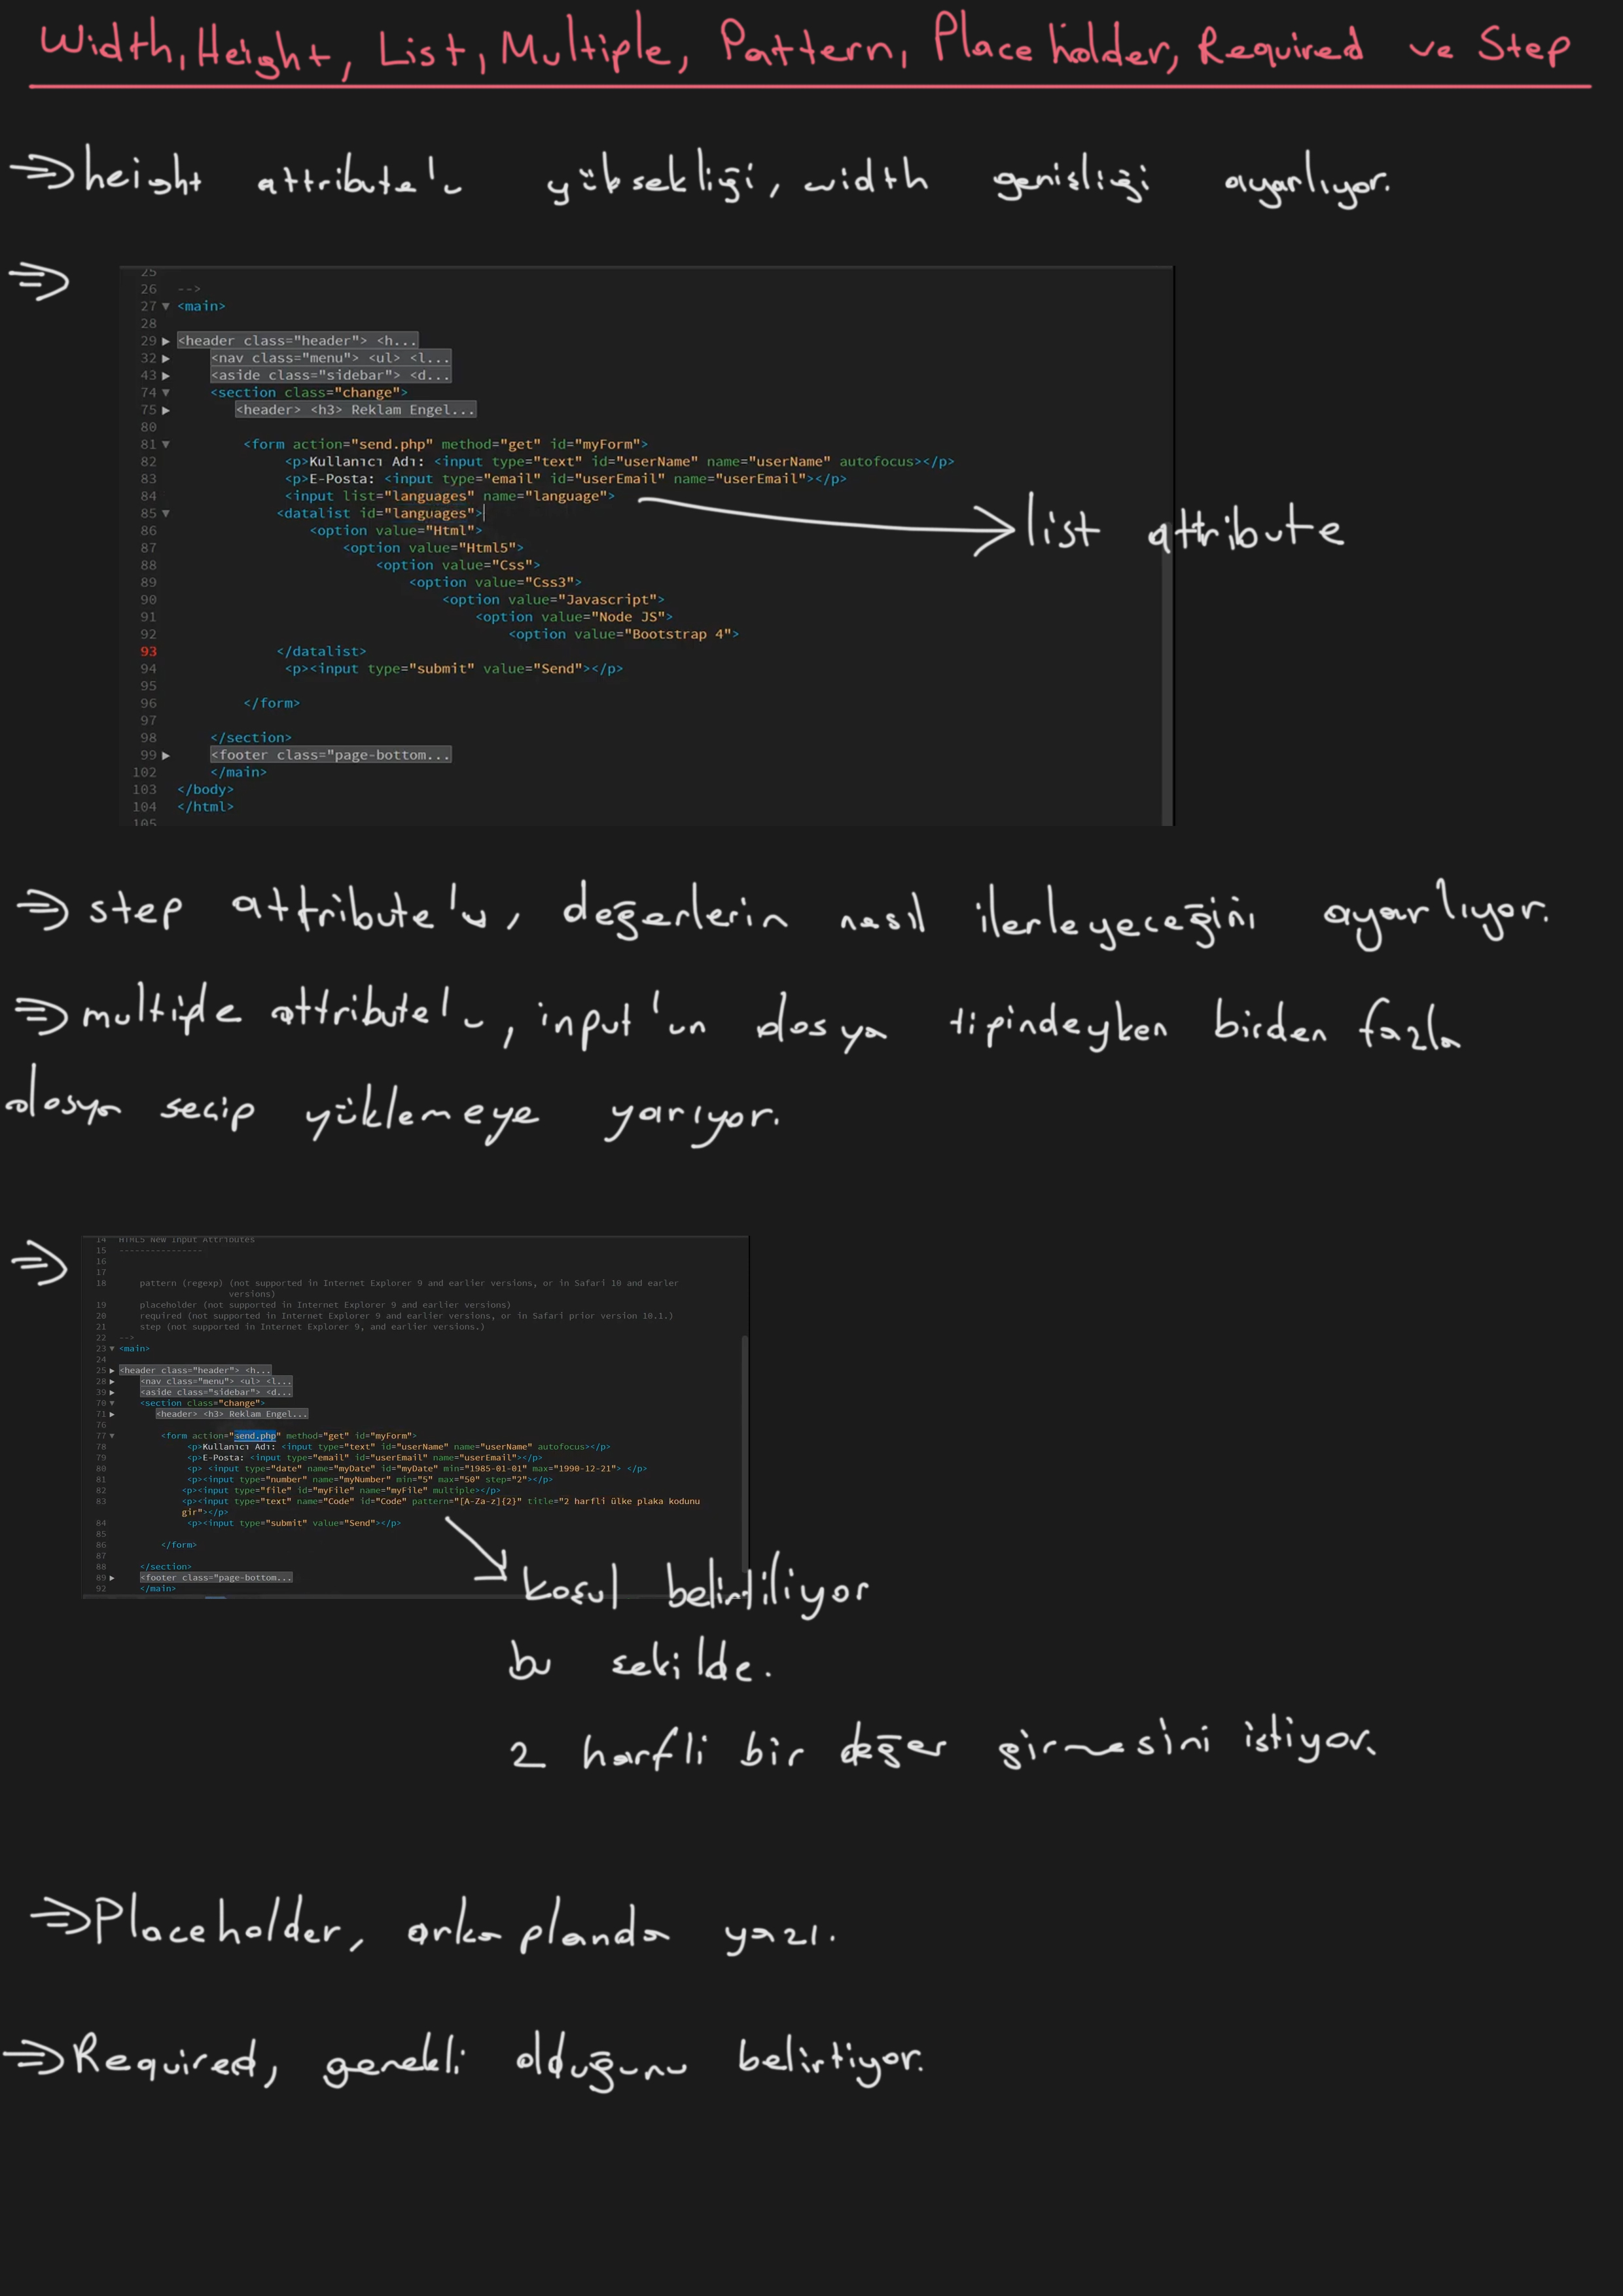 Width, Height, List, Multiple, Pattern, Place holder, Required ve Step
⇒ height attribute'u yüksekliği, width genişliği ayarlıyor.
⇒
25
26 -->
27 ▼ <main>
28
29 ▶ <header class="header"> <h...
32 ▶ <nav class="menu"> <ul> <l...
43 ▶ <aside class="sidebar"> <d...
74 ▼ <section class="change">
75 ▶ <header> <h3> Reklam Engel...
80
81 ▼ <form action="send.php" method="get" id="myForm">
82 <p>Kullanıcı Adı: <input type="text" id="userName" name="userName" autofocus></p>
83 <p>E-Posta: <input type="email" id="userEmail" name="userEmail"></p>
84 <input list="languages" name="language">
list attribute
85 ▼ <datalist id="languages">
86 <option value="Html">
87 <option value="Html5">
88 <option value="Css">
89 <option value="Css3">
90 <option value="Javascript">
91 <option value="Node JS">
92 <option value="Bootstrap 4">
93 </datalist>
94 <p><input type="submit" value="Send"></p>
95
96 </form>
97
98 </section>
99 ▶ <footer class="page-bottom...
102 </main>
103 </body>
104 </html>
105
⇒ step attribute'u, değerlerin nasıl ilerleyeceğini ayarlıyor.
⇒ multiple attribute'u, input'un dosya tipindeyken birden fazla
dosya seçip yüklemeye yarıyor.
⇒
14 HTML5 New Input Attributes
15 ----------------
16
17
18 pattern (regexp) (not supported in Internet Explorer 9 and earlier versions, or in Safari 10 and earler
versions)
19 placeholder (not supported in Internet Explorer 9 and earlier versions)
20 required (not supported in Internet Explorer 9 and earlier versions, or in Safari prior version 10.1.)
21 step (not supported in Internet Explorer 9, and earlier versions.)
22 -->
23 ▼ <main>
24
25 ▶ <header class="header"> <h...
28 ▶ <nav class="menu"> <ul> <l...
39 ▶ <aside class="sidebar"> <d...
70 ▼ <section class="change">
71 ▶ <header> <h3> Reklam Engel...
76
77 ▼ <form action="send.php" method="get" id="myForm">
78 <p>Kullanıcı Adı: <input type="text" id="userName" name="userName" autofocus></p>
79 <p>E-Posta: <input type="email" id="userEmail" name="userEmail"></p>
80 <p> <input type="date" name="myDate" id="myDate" min="1985-01-01" max="1990-12-21"> </p>
81 <p><input type="number" name="myNumber" min="5" max="50" step="2"></p>
82 <p><input type="file" id="myFile" name="myFile" multiple></p>
83 <p><input type="text" name="Code" id="Code" pattern="[A-Za-z]{2}" title="2 harfli ülke plaka kodunu
gir"></p>
84 <p><input type="submit" value="Send"></p>
85
86 </form>
87
88 </section>
89 ▶ <footer class="page-bottom...
92 </main>
koşul belirtiliyor
bu şekilde.
2 harfli bir değer girmesini istiyor.
⇒ Placeholder, arka planda yazı.
⇒ Required, gerekli olduğunu belirtiyor.